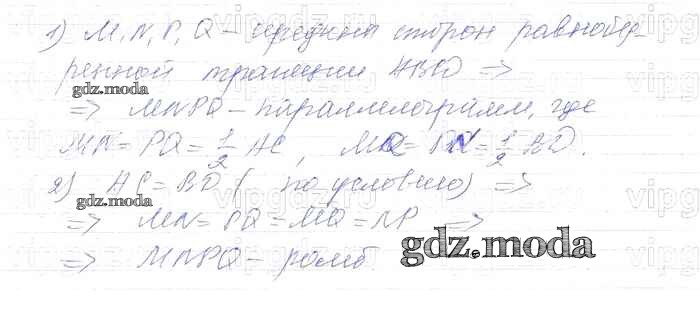 1) M, N, P, Q – середины сторон равнобед-
ренной трапеции ABCD =>
gdz.moda
=> MNPQ – параллелограмм, где
MN = PQ = 1/2 AC, MQ = PN = 1/2 BD.
2) AC = BD (по условию) =>
gdz.moda
=> MN = PQ = MQ = NP =>
=> MNPQ – ромб
gdz.moda